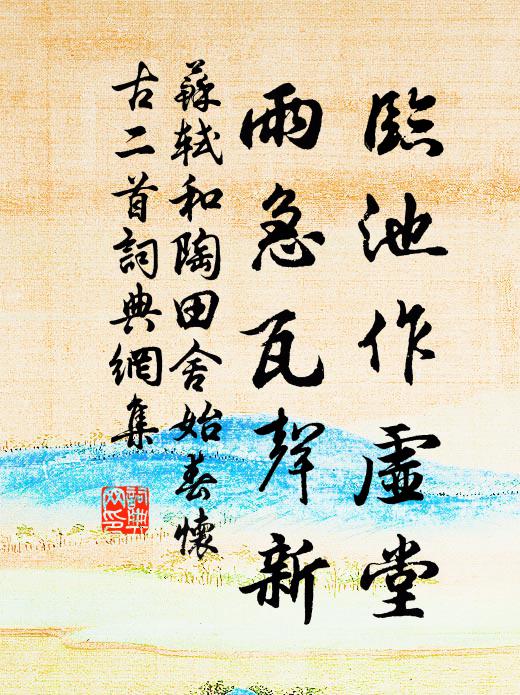 臨池作虛堂
雨急瓦聲新
蘇軾和陶田舍始春懷
古二首詞典網集
詞典網印